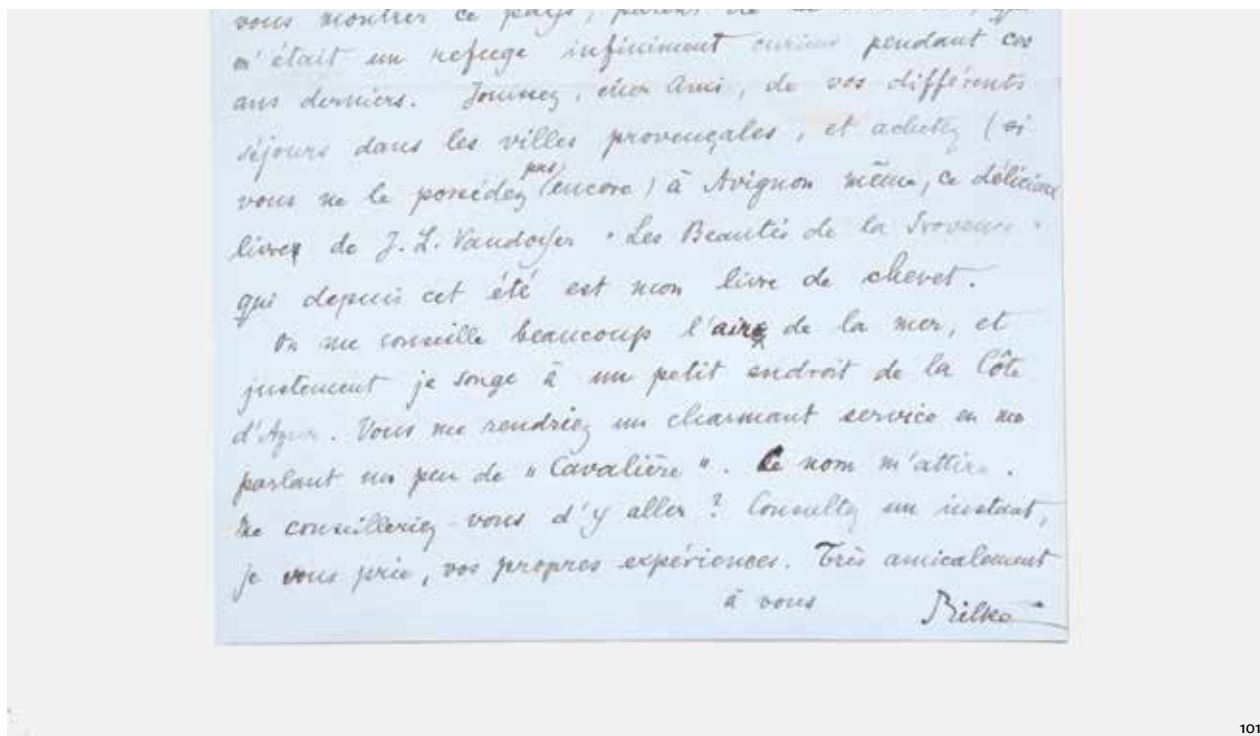 vous montrer ce pays,
m'était un refuge infiniment curieux pendant ces
ans derniers. Jouissez, cher Ami, de vos différents
séjours dans les villes provençales, et achetez (si
vous ne le possédez pas (encore) à Avignon même, ce délicieux
livre de J. L. Vaudoyer "Les Beautés de la Provence"
qui depuis cet été est mon livre de chevet.
On me conseille beaucoup l'air de la mer, et
justement je songe à un petit endroit de la Côte
d'Azur. Vous me rendriez un charmant service en me
parlant un peu de "Cavalière". Ce nom m'attire.
Me conseilleriez-vous d'y aller ? Consultez un instant,
je vous prie, vos propres expériences. Très amicalement
à vous Rilke
101